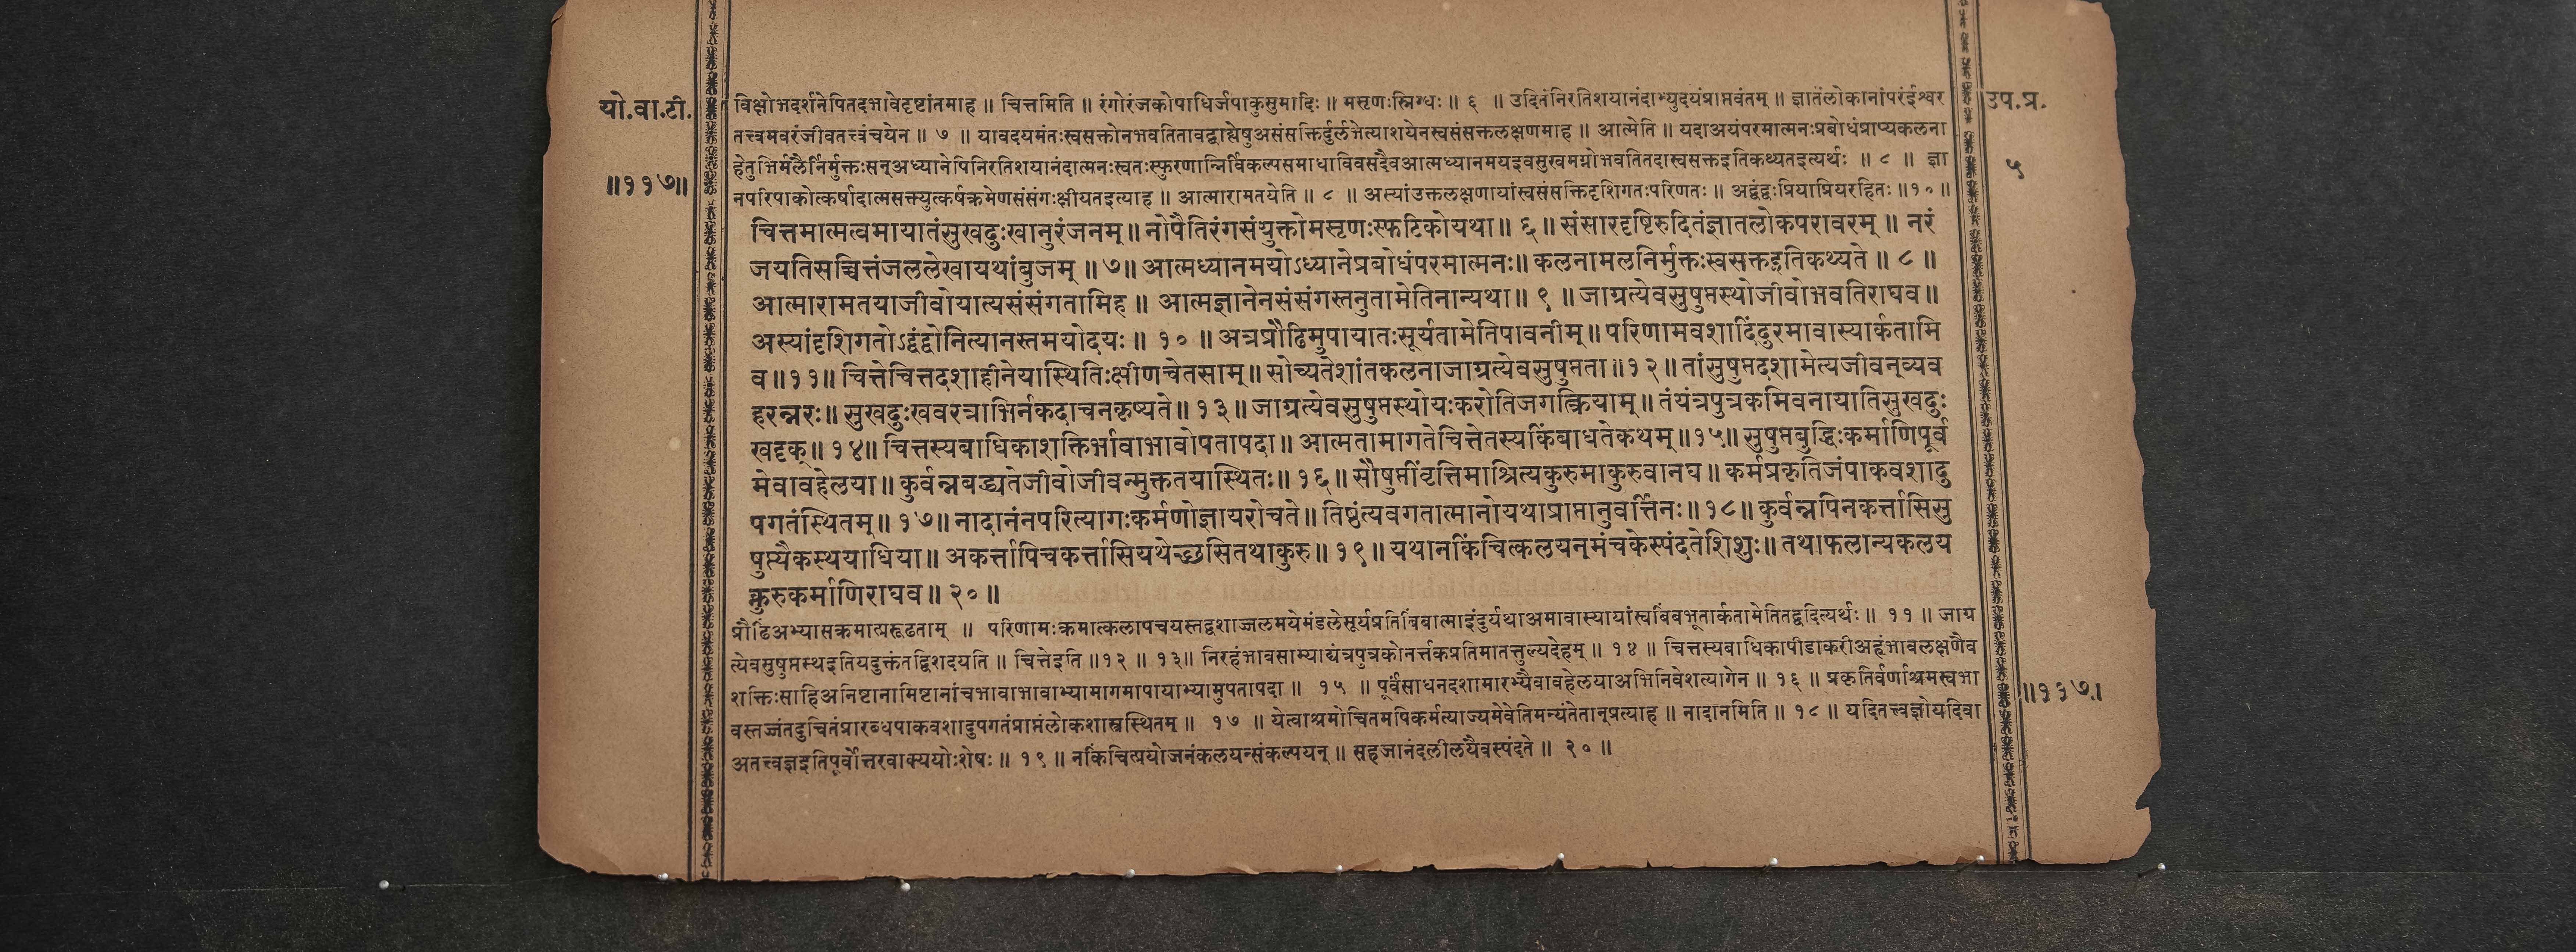 यो.वा.टी.
॥११७॥
विक्षोभदर्शनेपितदभावेदृष्टांतमाह ॥ चित्तमिति ॥ रंगोरंजकोपाधिर्जपाकुसुमादिः ॥ मसृणःस्निग्धः ॥ ६ ॥ उदितंनिरतिशयानंदाभ्युदयंप्राप्तवंतम् ॥ ज्ञातंलोकानांपरंईश्वर
तत्त्वमवरंजीवतत्त्वंचयेन ॥ ७ ॥ यावदयमंतःस्वसक्तोनभवतितावद्बाह्येषुअसंसक्तिर्दुर्लभेत्याशयेनस्वसंसक्तलक्षणमाह ॥ आत्मेति ॥ यदाअयंपरमात्मनःप्रबोधंप्राप्यकलना
हेतुभिर्मलैर्निर्मुक्तःसन्अध्यानेपिनिरतिशयानंदात्मनःस्वतःस्फुरणान्निर्विकल्पसमाधाविवसदैवआत्मध्यानमयइवसुखमग्नोभवतितदास्वसक्तइतिकथ्यतइत्यर्थः ॥ ८ ॥ ज्ञा
नपरिपाकोत्कर्षादात्मसक्त्युत्कर्षक्रमेणसंसंगःक्षीयतइत्याह ॥ आत्मारामतयेति ॥ ८ ॥ अस्यांउक्तलक्षणायांस्वसंसक्तिदृशिगतःपरिणतः ॥ अद्वंद्वःप्रियाप्रियरहितः ॥१०॥
चित्तमात्मत्वमायातंसुखदुःखानुरंजनम् ॥ नोपैतिरंगसंयुक्तोमसृणःस्फटिकोयथा ॥ ६ ॥ संसारदृष्टिरुदितंज्ञातलोकपरावरम् ॥ नरं
जयतिसच्चित्तंजललेखायथांबुजम् ॥ ७ ॥ आत्मध्यानमयोऽध्यानेप्रबोधंपरमात्मनः ॥ कलनामलनिर्मुक्तःस्वसक्तइतिकथ्यते ॥ ८ ॥
आत्मारामतयाजीवोयात्यसंसंगतामिह ॥ आत्मज्ञानेनसंसंगस्तनुतामेतिनान्यथा ॥ ९ ॥ जाग्रत्येवसुषुप्तस्थोजीवोभवतिराघव ॥
अस्यांदृशिगतोऽद्वंद्वोनित्यानस्तमयोदयः ॥ १० ॥ अत्रप्रौढिमुपायातःसूर्यतामेतिपावनीम् ॥ परिणामवशादिंदुरमावास्यार्कतामि
व ॥११॥ चित्तेचित्तदशाहीनेयास्थितिःक्षीणचेतसाम् ॥ सोच्यतेशांतकलनाजाग्रत्येवसुषुप्तता ॥१२॥ तांसुषुप्तदशामेत्यजीवन्व्यव
हरन्नरः ॥ सुखदुःखवरत्राभिर्नकदाचनकृष्यते ॥ १३ ॥ जाग्रत्येवसुषुप्तस्थोयःकरोतिजगत्क्रियाम् ॥ तंयंत्रपुत्रकमिवनायातिसुखदुः
खदृक् ॥ १४॥ चित्तस्यबाधिकाशक्तिर्भावाभावोपतापदा ॥ आत्मतामागतेचित्तेतस्यकिंबाधतेकथम् ॥१५॥ सुषुप्तबुद्धिःकर्माणिपूर्व
मेवावहेलया ॥ कुर्वन्नबद्ध्यतेजीवोजीवन्मुक्ततयास्थितः ॥ १६ ॥ सौषुप्तींवृत्तिमाश्रित्यकुरुमाकुरुवानघ ॥ कर्मप्रकृतिजंपाकवशादु
पगतंस्थितम् ॥ १७ ॥ नादानंनपरित्यागःकर्मणोज्ञायरोचते ॥ तिष्ठंत्यवगतात्मानोयथाप्राप्तानुवर्त्तिनः ॥१८॥ कुर्वन्नपिनकर्त्तासिसु
षुप्त्यैकस्थयाधिया ॥ अकर्त्तापिचकर्त्तासियथेच्छसितथाकुरु ॥ १९ ॥ यथानकिंचित्कलयन्मंचकेस्पंदतेशिशुः ॥ तथाफलान्यकलय
न्कुरुकर्माणिराघव ॥ २० ॥
प्रौढिंअभ्यासक्रमात्प्ररूढताम् ॥ परिणामःक्रमात्कलापचयस्तद्वशाज्जलमयेमंडलेसूर्यप्रतिबिंबात्माइंदुर्यथाअमावास्यायांस्वबिंबभूतार्कतामेतितद्वदित्यर्थः ॥ ११ ॥ जाग्र
त्येवसुषुप्तस्थइतियदुक्तंतद्विशदयति ॥ चित्तेइति ॥१२ ॥ १३॥ निरहंभावसाम्याद्यंत्रपुत्रकोनर्त्तकप्रतिमातत्तुल्यदेहम् ॥ १४ ॥ चित्तस्यबाधिकापीडाकरीअहंभावलक्षणैव
शक्तिःसाहिअनिष्टानामिष्टानांचभावाभावाभ्यामागमापायाभ्यामुपतापदा ॥ १५ ॥ पूर्वंसाधनदशामारभ्यैवावहेलयाअभिनिवेशत्यागेन ॥ १६ ॥ प्रकृतिर्वर्णाश्रमस्वभा
वस्तज्जंतदुचितंप्रारब्धपाकवशादुपगतंप्राप्तंलोकशास्त्रस्थितम् ॥ १७ ॥ येत्वाश्रमोचितमपिकर्मत्याज्यमेवेतिमन्यंतेतान्प्रत्याह ॥ नादानमिति ॥ १८ ॥ यदितत्त्वज्ञोयदिवा
अतत्त्वज्ञइतिपूर्वोत्तरवाक्ययोःशेषः ॥ १९ ॥ नकिंचित्प्रयोजनंकलयन्संकल्पयन् ॥ सहजानंदलीलयैवस्पंदते ॥ २० ॥
उप.प्र.
५
॥११७॥